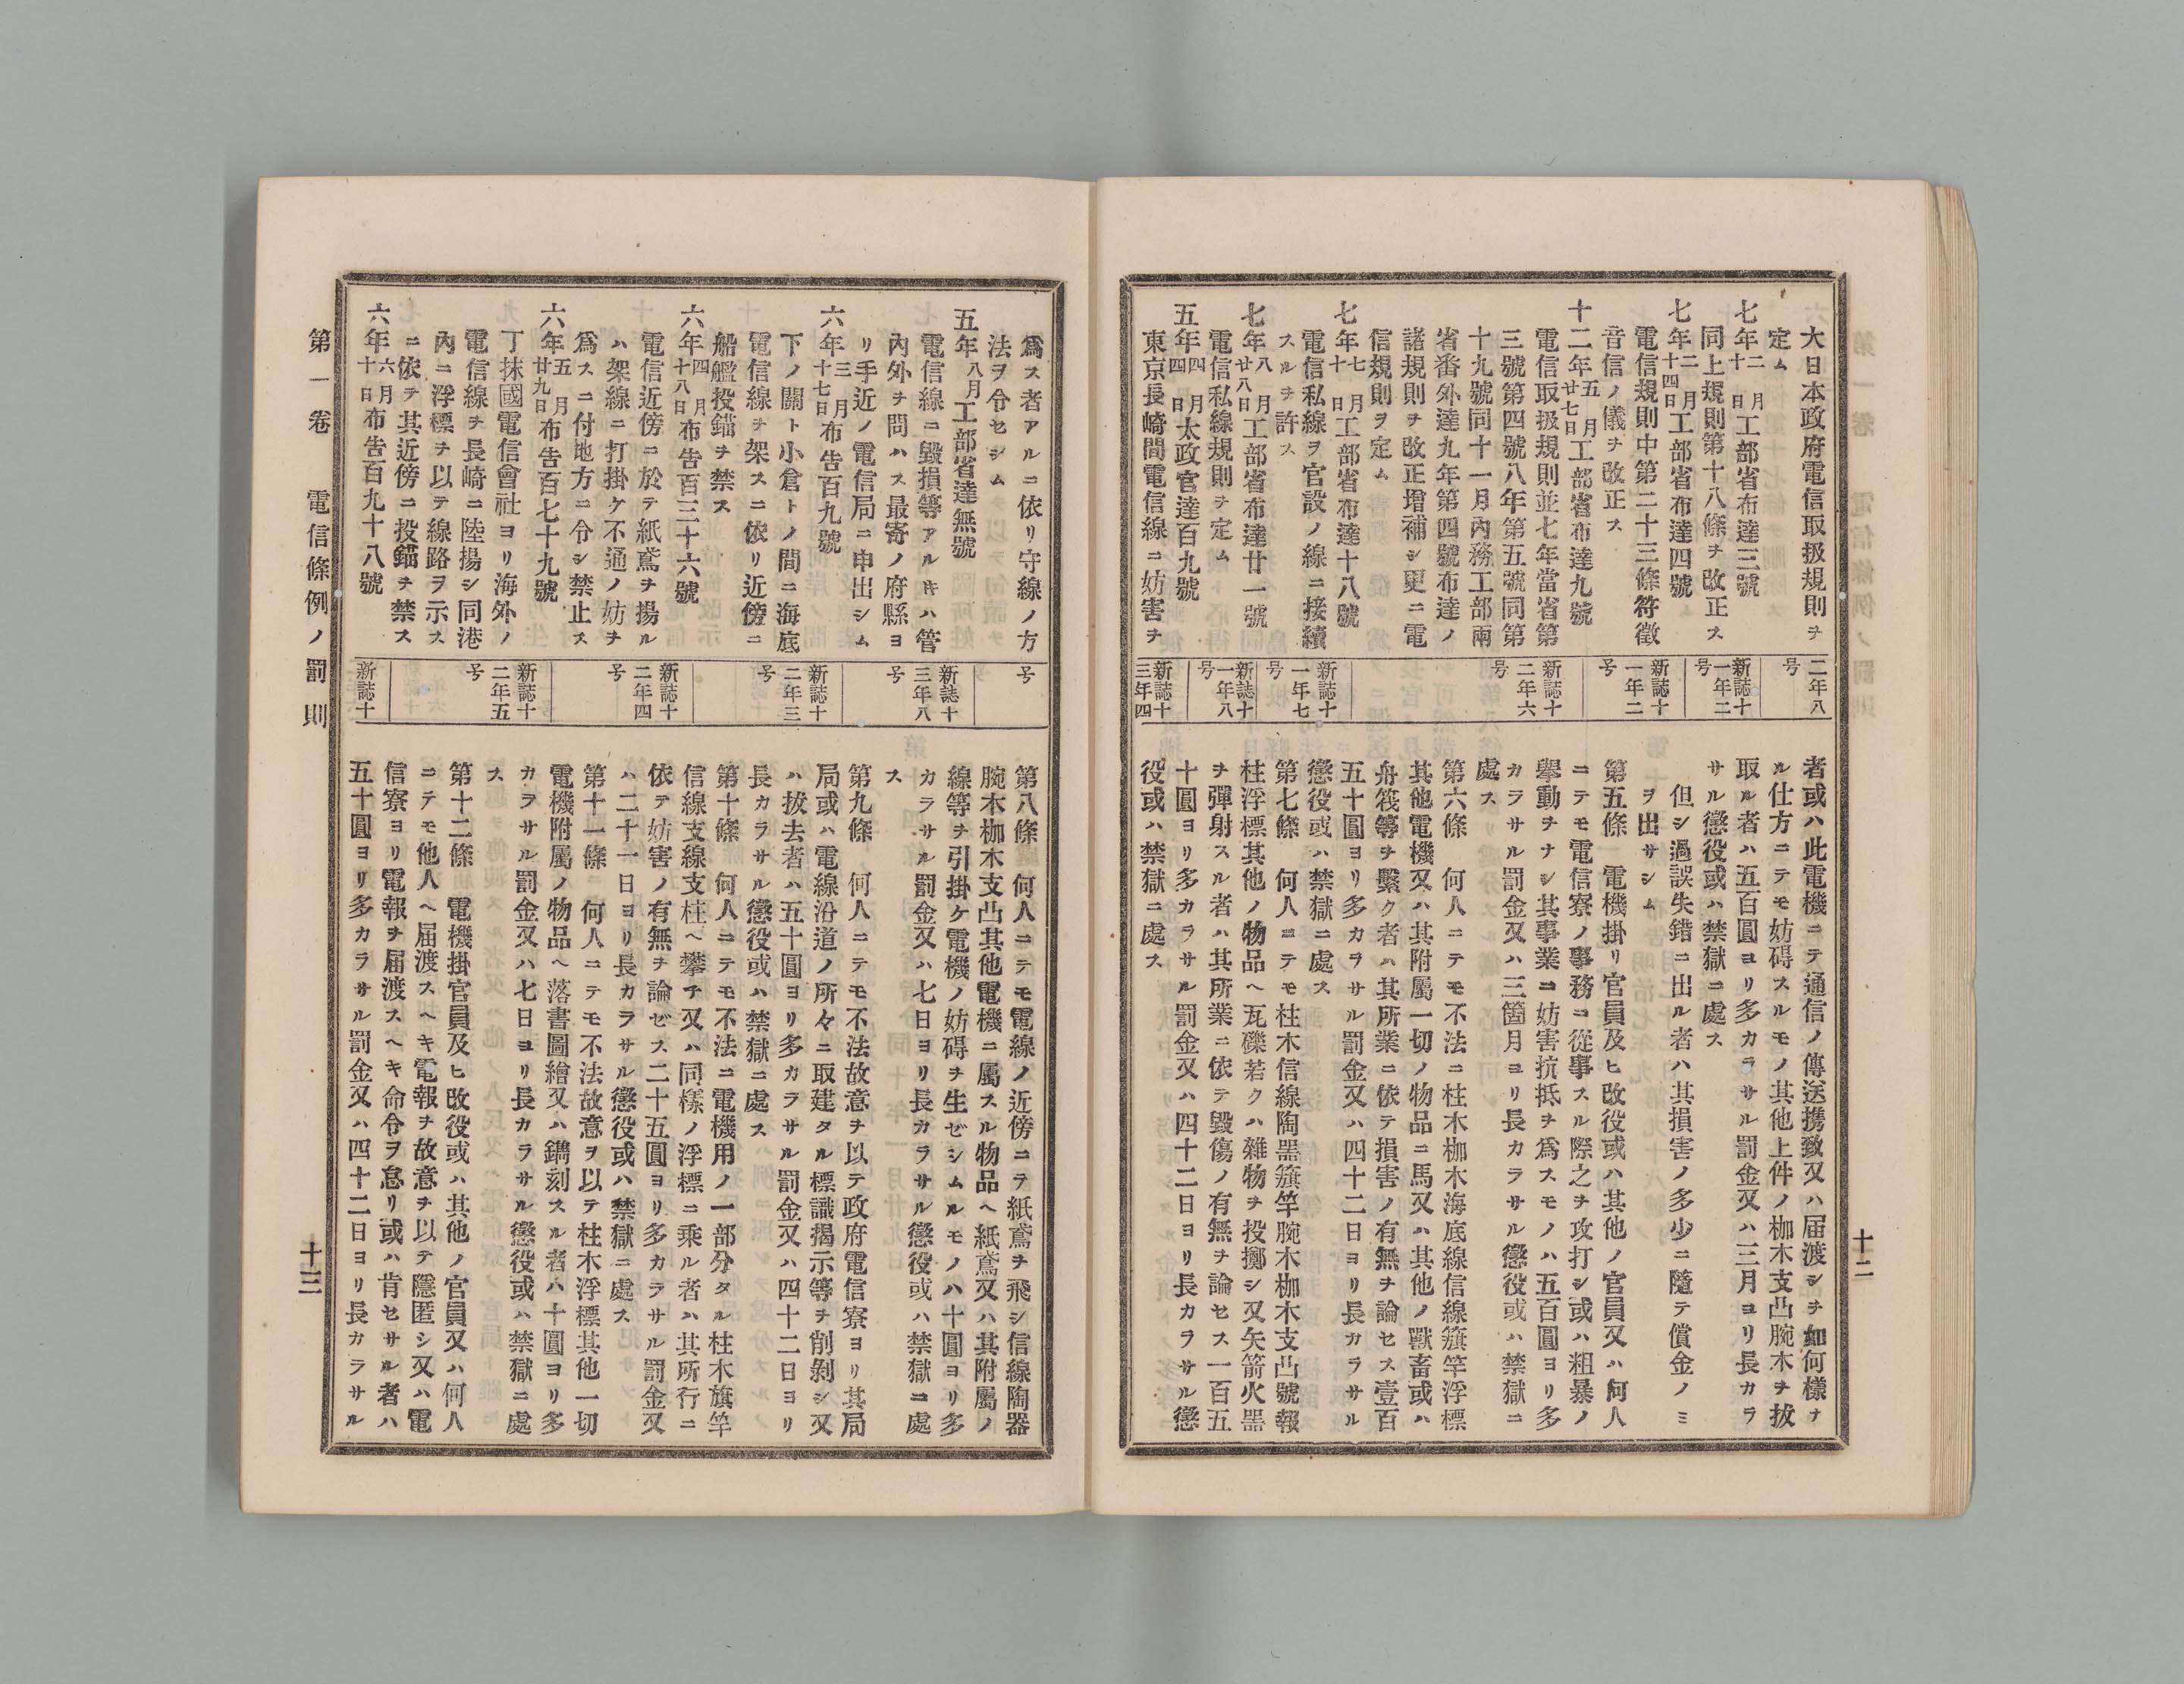 大日本政府電信取扱規則ヲ
定ム
七年二月十日工部省布達三號
同上規則第十八條ヲ改正ス
七年二月十四日工部省布達四號
電信規則中第二十三條符徵
音信ノ儀ヲ改正ス
十二年五月廿七日工部省布達九號
電信取扱規則並七年當省第
三號第四號八年第五號同第
十九號同十一月內務工部兩
省番外達九年第四號布達ノ
諸規則ヲ改正增補シ更ニ電
信規則ヲ定ム
七年七月十日工部省布達十八號
電信私線ヲ官設ノ線ニ接續
スルヲ許ス
七年八月廿八日工部省布達廿一號
電信私線規則ヲ定ム
五年四月四日太政官達百九號
東京長崎間電信線ニ妨害ヲ
二年八
号
新誌十
一年二
号
新誌十
一年二
号
新誌十
二年六
号
新誌十
一年七
号
新誌十
一年八
号
新誌十
三年四
者或ハ此電機ニテ通信ノ傳送携致又ハ届渡シヲ如何樣ナ
ル仕方ニテモ妨碍スルモノ其他上件ノ枷木支凸腕木ヲ拔
取ル者ハ五百圓ヨリ多カラサル罰金又ハ三月ヨリ長カラ
サル懲役或ハ禁獄ニ處ス
但シ過誤失錯ニ出ル者ハ其損害ノ多少ニ隨テ償金ノミ
ヲ出サシム
第五條　電機掛リ官員及ヒ改役或ハ其他ノ官員又ハ何人
ニテモ電信寮ノ事務ニ從事スル際之ヲ攻打シ或ハ粗暴ノ
擧動ヲナシ其事業ニ妨害抗抵ヲ爲スモノハ五百圓ヨリ多
カラサル罰金又ハ三箇月ヨリ長カラサル懲役或ハ禁獄ニ
處ス
第六條　何人ニテモ不法ニ柱木枷木海底線信線籏竿浮標
其他電機又ハ其附屬一切ノ物品ニ馬又ハ其他ノ獸畜或ハ
舟筏等ヲ繫ク者ハ其所業ニ依テ損害ノ有無ヲ論セス壹百
五十圓ヨリ多カラサル罰金又ハ四十二日ヨリ長カラサル
懲役或ハ禁獄ニ處ス
第七條　何人ニテモ柱木信線陶噐籏竿腕木枷木支凸號報
柱浮標其他ノ物品ヘ瓦礫若クハ雜物ヲ投擲シ又矢箭火噐
ヲ彈射スル者ハ其所業ニ依テ毀傷ノ有無ヲ論セス一百五
十圓ヨリ多カラサル罰金又ハ四十二日ヨリ長カラサル懲
役或ハ禁獄ニ處ス
十二
爲ス者アルニ依リ守線ノ方
法ヲ令セシム
五年八月工部省達無號
電信線ニ毀損等アルキハ管
內外ヲ問ハス最寄ノ府縣ヨ
リ手近ノ電信局ニ申出シム
六年三月十七日布告百九號
下ノ關ト小倉トノ間ニ海底
電信線ヲ架スニ依リ近傍ニ
船艦投錨ヲ禁ス
六年四月十八日布告百三十六號
電信近傍ニ於テ紙鳶ヲ揚ル
ハ架線ニ打掛ケ不通ノ妨ヲ
爲スニ付地方ニ令シ禁止ス
六年五月廿九日布告百七十九號
丁抹國電信會社ヨリ海外ノ
電信線ヲ長崎ニ陸揚シ同港
內ニ浮標ヲ以テ線路ヲ示ス
ニ依テ其近傍ニ投錨ヲ禁ス
六年六月十日布告百九十八號
号
新誌十
三年八
号
新誌十
二年三
号
新誌十
二年四
号
新誌十
二年五
号
新誌十
第八條　何人ニテモ電線ノ近傍ニテ紙鳶ヲ飛シ信線陶器
腕木枷木支凸其他電機ニ屬スル物品ヘ紙鳶又ハ其附屬ノ
線等ヲ引掛ケ電機ノ妨碍ヲ生ゼシムルモノハ十圓ヨリ多
カラサル罰金又ハ七日ヨリ長カラサル懲役或ハ禁獄ニ處
ス
第九條　何人ニテモ不法故意ヲ以テ政府電信寮ヨリ其局
局或ハ電線沿道ノ所々ニ取建タル標識揭示等ヲ削剝シ又
ハ拔去者ハ五十圓ヨリ多カラサル罰金又ハ四十二日ヨリ
長カラサル懲役或ハ禁獄ニ處ス
第十條　何人ニテモ不法ニ電機用ノ一部分タル柱木旗竿
信線支線支柱ヘ攀テ又ハ同樣ノ浮標ニ乘ル者ハ其所行ニ
依テ妨害ノ有無ヲ論ゼス二十五圓ヨリ多カラサル罰金又
ハ二十一日ヨリ長カラサル懲役或ハ禁獄ニ處ス
第十一條　何人ニテモ不法故意ヲ以テ柱木浮標其他一切
電機附屬ノ物品ヘ落書圖繪又ハ鐫刻スル者ハ十圓ヨリ多
カラサル罰金又ハ七日ヨリ長カラサル懲役或ハ禁獄ニ處
ス
第十二條　電機掛官員及ヒ改役或ハ其他ノ官員又ハ何人
ニテモ他人ヘ届渡スヘキ電報ヲ故意ヲ以テ隱匿シ又ハ電
信寮ヨリ電報ヲ届渡スヘキ命令ヲ怠リ或ハ肯セサル者ハ
五十圓ヨリ多カラサル罰金又ハ四十二日ヨリ長カラサル
第一卷　電信條例ノ罰則
十三